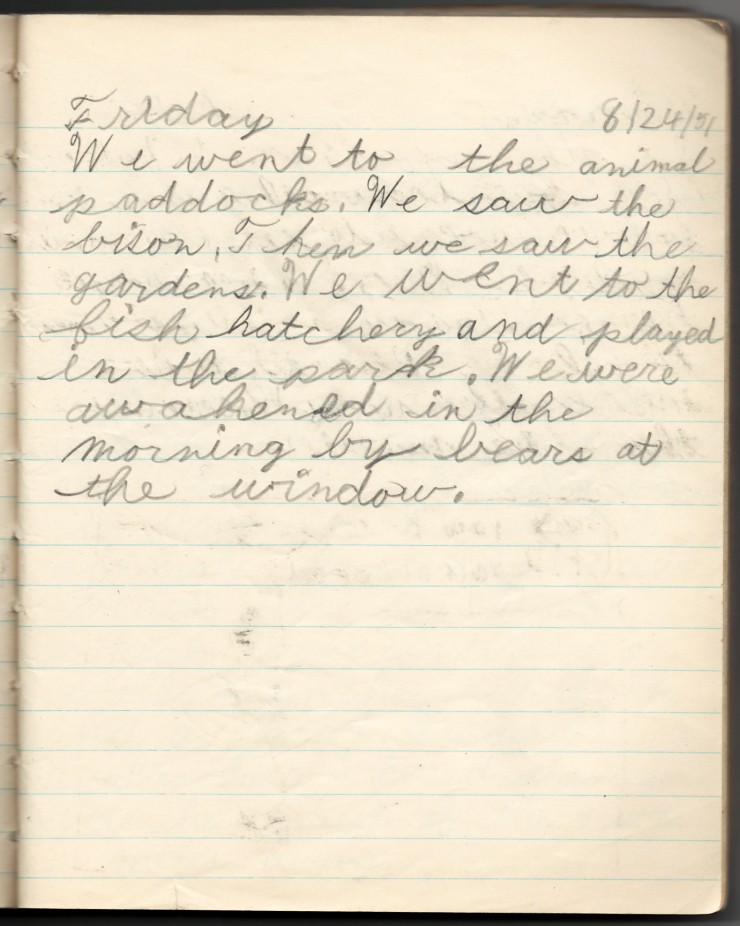 Friday 8/24/51
We went to the animal
paddocks. We saw the
bison. Then we saw the
gardens. We went to the
fish hatchery and played
in the park. We were
awakened in the
morning by bears at
the window.